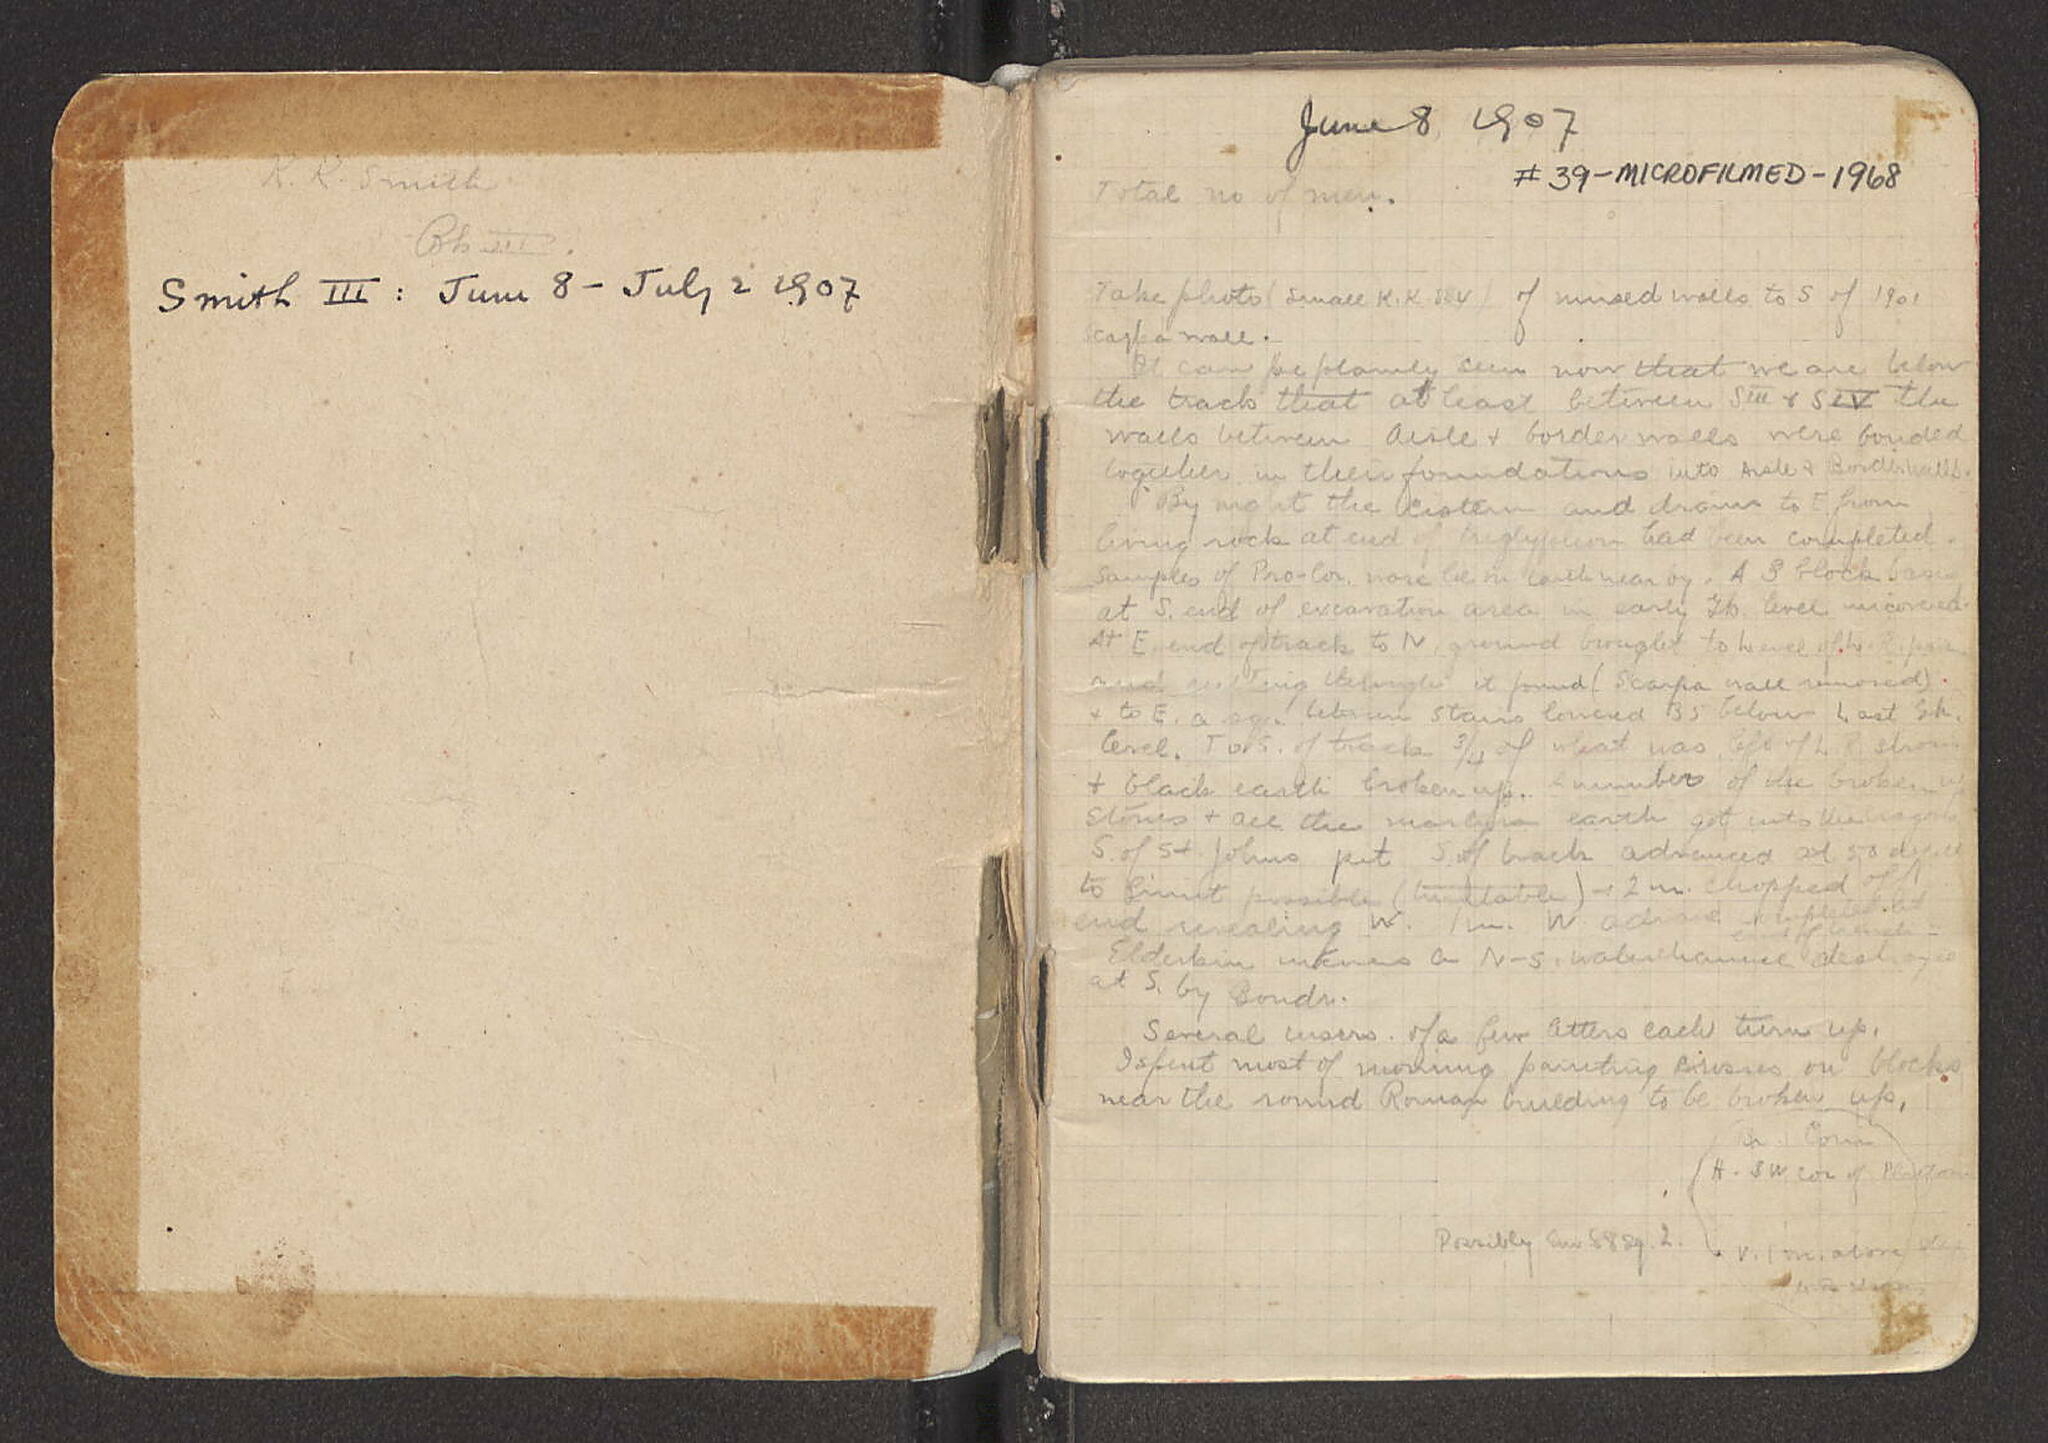 K. K. Smith
Bk III.
Smith III : June 8 - July 2 1907
June 8, 1907
# 39-MICROFILMED-1968
Total no of men.
Take photo (small K.K. 384) of mused walls to S of 1901
Scarpa wall.
It can be plainly seen now that we are below
the track that at least between SIII & SIV the
walls between Aisle + border walls were bonded
together in their foundations into Aisle & Border walls.
By night the cistern and drain to E from
living rock at end of triglyphon had been completed.
Samples of Pro-Cor. in earth near by. A 3 block base
at S. end of excavation area in early Gk. level uncovered.
At E. end of track to N, ground brought to level of L. R.
and it found (Scarpa wall removed).
+ to E. a between stairs lowered 35 below Last Gk.
level. To S. of track 3/4 of what was left of L. R.
+ black earth broken up. A number of the broken up
stones + all the earth got into the wagons
S. of St. Johns pit S. of track advanced at
to limit possible (turntable) + 2 m. chopped off
end revealing W. 1 m. W. advance completed at
end of
Elderkin a N-S. waterchannel destroyed
at S. by
Several inscrs. of a few letters each turn up.
I spent most of morning painting crosses on blocks
near the round Roman building to be broken up.
H. SW cor of
Possibly 2.
V. 1 m. above